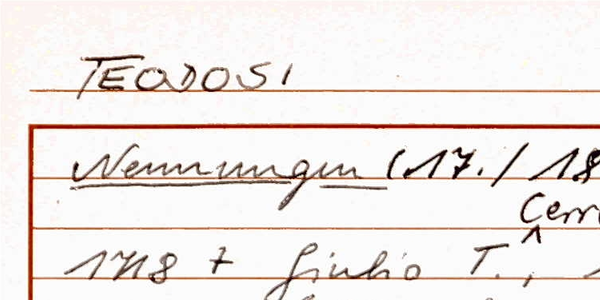 TEODOSI
Nennungen (17./18
Cerr
1718 + Giulio T.,